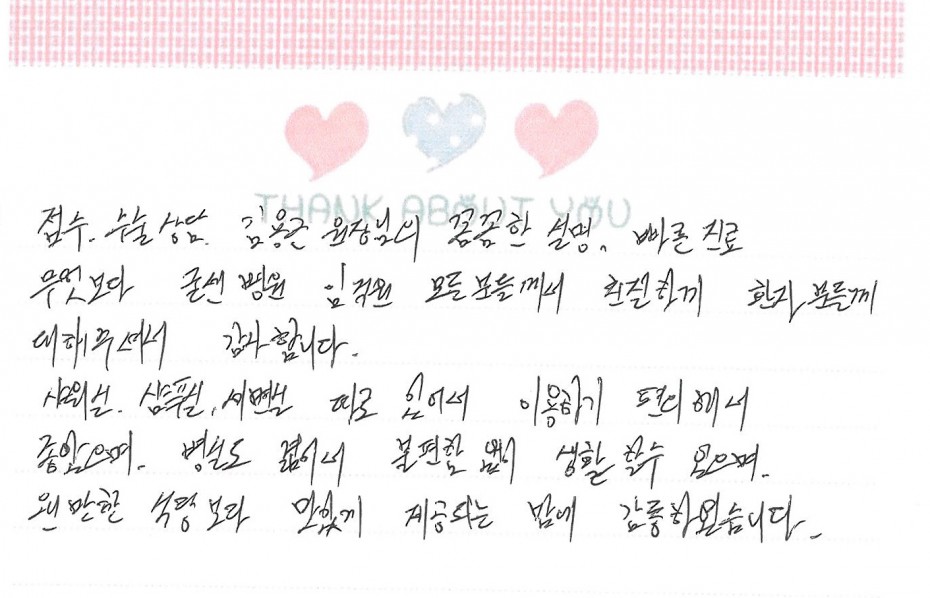 THANK ABOUT YOU
접수. 수술 상담. 김용근 원장님의 꼼꼼한 설명, 빠른 진료
무엇보다 굳센병원 임직원 모든 분들께서 친절하게 환자분들께
대해주셔서 감사합니다.
샤워실. 샴푸실, 세면실 따로 있어서 이용하기 편리해서
좋았으며. 병실도 넓어서 불편함 없이 생활 할수
왠만한 식당보다 맛있게 제공되는 밥에 감동하였습니다.